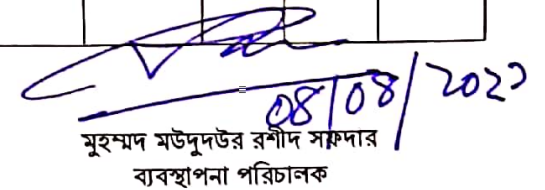 08/08/2022
মুহম্মদ মউদুদউর রশীদ সফদার
ব্যবস্থাপনা পরিচালক